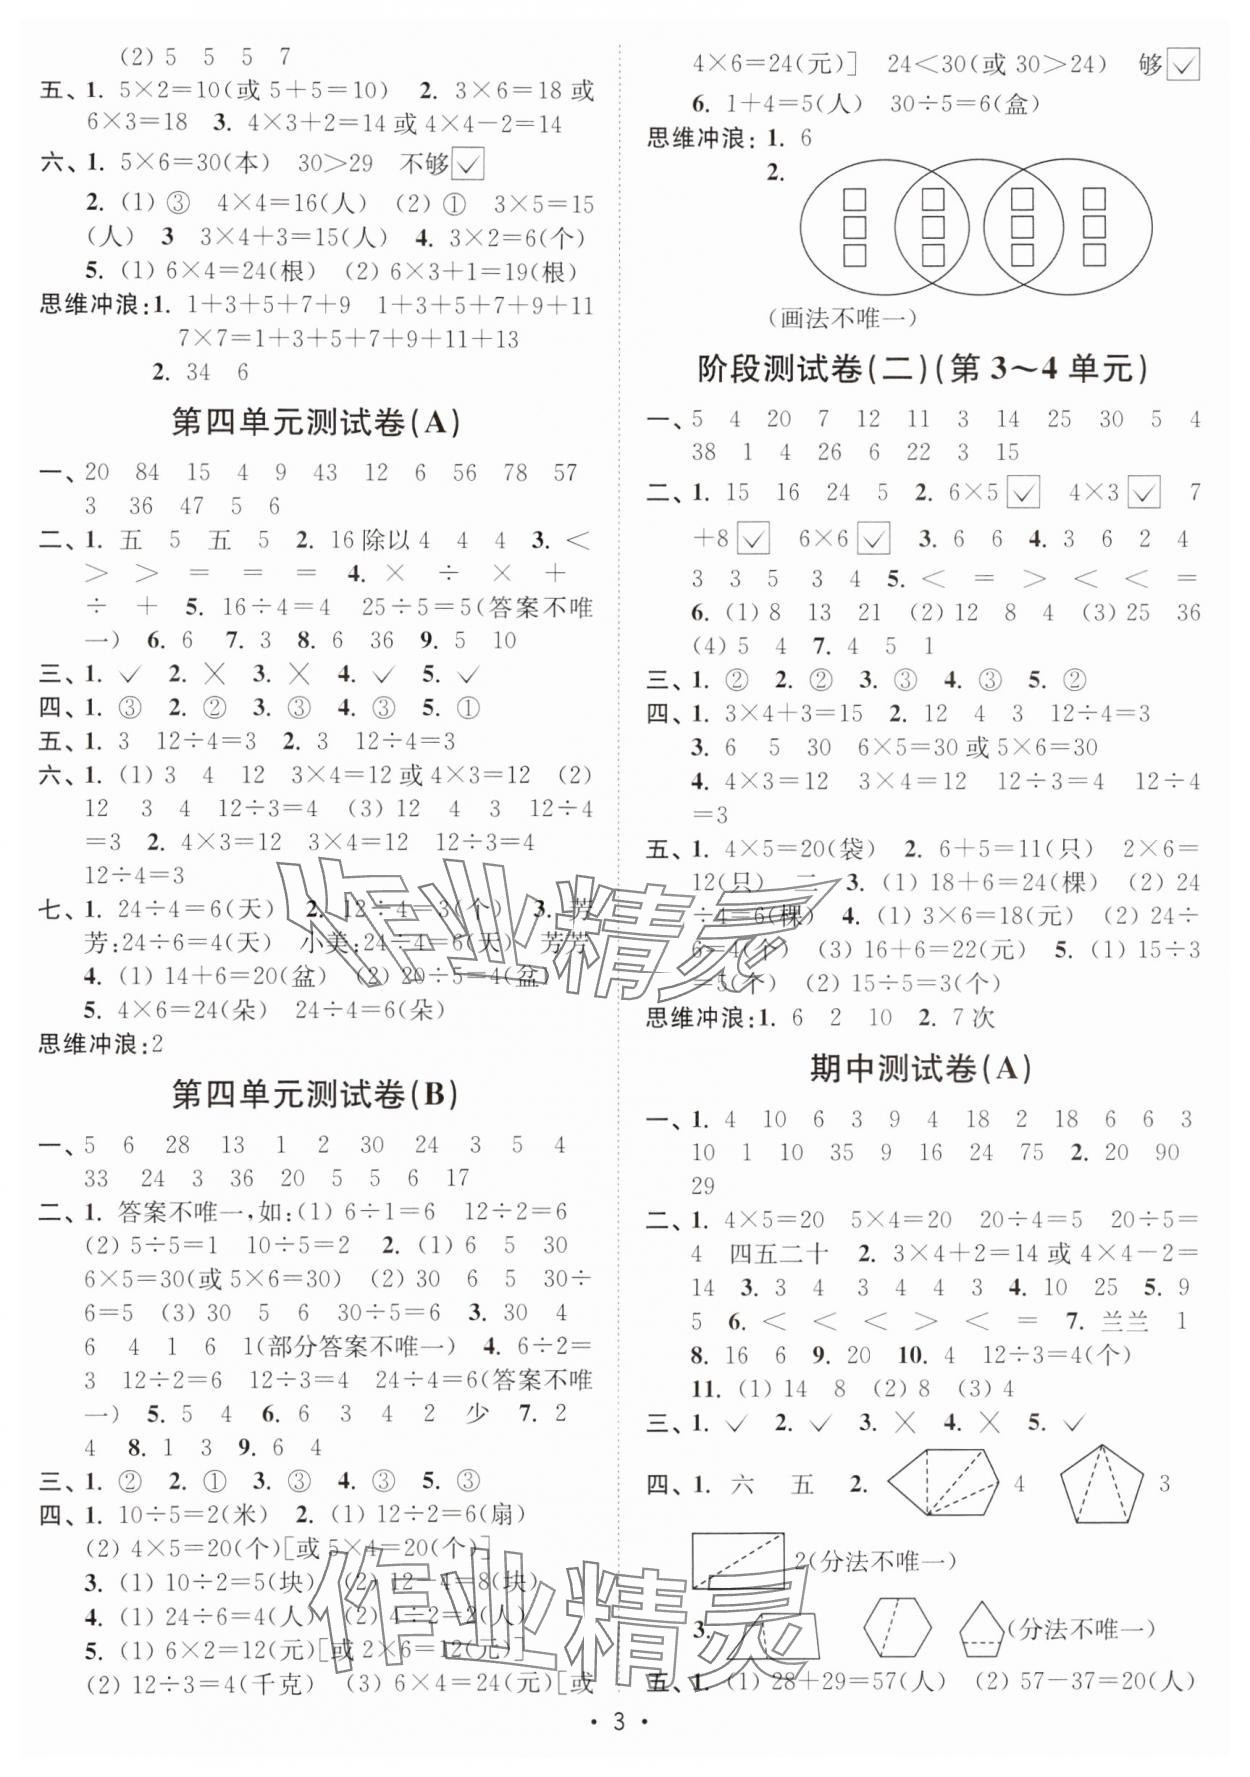 (2) 5 5 5 7
五、1. 5×2=10(或5+5=10) 2. 3×6=18或
6×3=18 3. 4×3+2=14或4×4-2=14
六、1. 5×6=30(本) 30>29 不够✓
2. (1) ③ 4×4=16(人) (2) ① 3×5=15
(人) 3 3×4+3=15(人) 4. 3×2=6(个)
5. (1) 6×4=24(根) (2) 6×3+1=19(根)
思维冲浪:1. 1+3+5+7+9 1+3+5+7+9+11
7×7=1+3+5+7+9+11+13
2. 34 6
第四单元测试卷(A)
一、20 84 15 4 9 43 12 6 56 78 57
3 36 47 5 6
二、1. 五 5 五 5 2. 16除以4 4 4 3. <
> > = = = 4. × ÷ × +
÷ + 5. 16÷4=4 25÷5=5(答案不唯
一) 6. 6 7. 3 8. 6 36 9. 5 10
三、1. ✓ 2. × 3. × 4. ✓ 5. ✓
四、1. ③ 2. ② 3. ③ 4. ③ 5. ①
五、1. 3 12÷4=3 2. 3 12÷4=3
六、1. (1) 3 4 12 3×4=12或4×3=12 (2)
12 3 4 12÷3=4 (3) 12 4 3 12÷4
=3 2. 4×3=12 3×4=12 12÷3=4
12÷4=3
七、1. 24÷4=6(天) 2. 12÷4=3(个) 3. 芳
芳:24÷6=4(天) 小美:24÷4=6(天) 芳芳
4. (1) 14+6=20(盆) (2) 20÷5=4(盆)
5. 4×6=24(朵) 24÷4=6(朵)
思维冲浪:2
第四单元测试卷(B)
一、5 6 28 13 1 2 30 24 3 5 4
33 24 3 36 20 5 5 6 17
二、1. 答案不唯一,如:(1) 6÷1=6 12÷2=6
(2) 5÷5=1 10÷5=2 2. (1) 6 5 30
6×5=30(或5×6=30) (2) 30 6 5 30÷
6=5 (3) 30 5 6 30÷5=6 3. 30 4
6 4 1 6 1(部分答案不唯一) 4. 6÷2=
3 12÷2=6 12÷3=4 24÷4=6(答案不唯
一) 5. 5 4 6. 6 3 4 2 少 7. 2
4 8. 1 3 9. 6 4
三、1. ② 2. ① 3. ③ 4. ③ 5. ③
四、1. 10÷5=2(米) 2. (1) 12÷2=6(扇)
(2) 4×5=20(个)[或5×4=20(个)]
3. (1) 10÷2=5(块) (2) 12-4=8(块)
4. (1) 24÷6=4(人) (2) 4÷2=2(人)
5. (1) 6×2=12(元)[或2×6=12(元)]
(2) 12÷3=4(千克) (3) 6×4=24(元)[或
4×6=24(元)] 24<30(或30>24) 够✓
6. 1+4=5(人) 30÷5=6(盒)
思维冲浪:1. 6
2.
(画法不唯一)
阶段测试卷(二)(第3~4单元)
一、5 4 20 7 12 11 3 14 25 30 5 4
38 1 4 26 6 22 3 15
二、1. 15 16 24 5 2. 6×5✓ 4×3✓ 7
+8✓ 6×6✓ 3. 6 6 4. 3 6 2 4
3 3 5 3 4 5. < = > < < =
6. (1) 8 13 21 (2) 12 8 4 (3) 25 36
(4) 5 4 7. 4 5 1
三、1. ② 2. ② 3. ③ 4. ③ 5. ②
四、1. 3×4+3=15 2. 12 4 3 12÷4=3
3. 6 5 30 6×5=30或5×6=30
4. 4×3=12 3×4=12 12÷3=4 12÷4
=3
五、1. 4×5=20(袋) 2. 6+5=11(只) 2×6=
12(只) 二 3. (1) 18+6=24(棵) (2) 24
÷4=6(棵) 4. (1) 3×6=18(元) (2) 24÷
6=4(个) (3) 16+6=22(元) 5. (1) 15÷3
=5(个) (2) 15÷5=3(个)
思维冲浪:1. 6 2 10 2. 7次
期中测试卷(A)
一、1. 4 10 6 3 9 4 18 2 18 6 6 3
10 1 10 35 9 16 24 75 2. 20 90
29
二、1. 4×5=20 5×4=20 20÷4=5 20÷5=
4 四五二十 2. 3×4+2=14或4×4-2=
14 3. 3 4 3 4 4 3 4. 10 25 5. 9
5 6. < < < > < = 7. 兰兰 1
8. 16 6 9. 20 10. 4 12÷3=4(个)
11. (1) 14 8 (2) 8 (3) 4
三、1. ✓ 2. ✓ 3. × 4. × 5. ✓
四、1. 六 五 2. 4 3
2(分法不唯一)
3. (分法不唯一)
五、1. (1) 28+29=57(人) (2) 57-37=20(人)
• 3 •
作业精灵
作业精灵